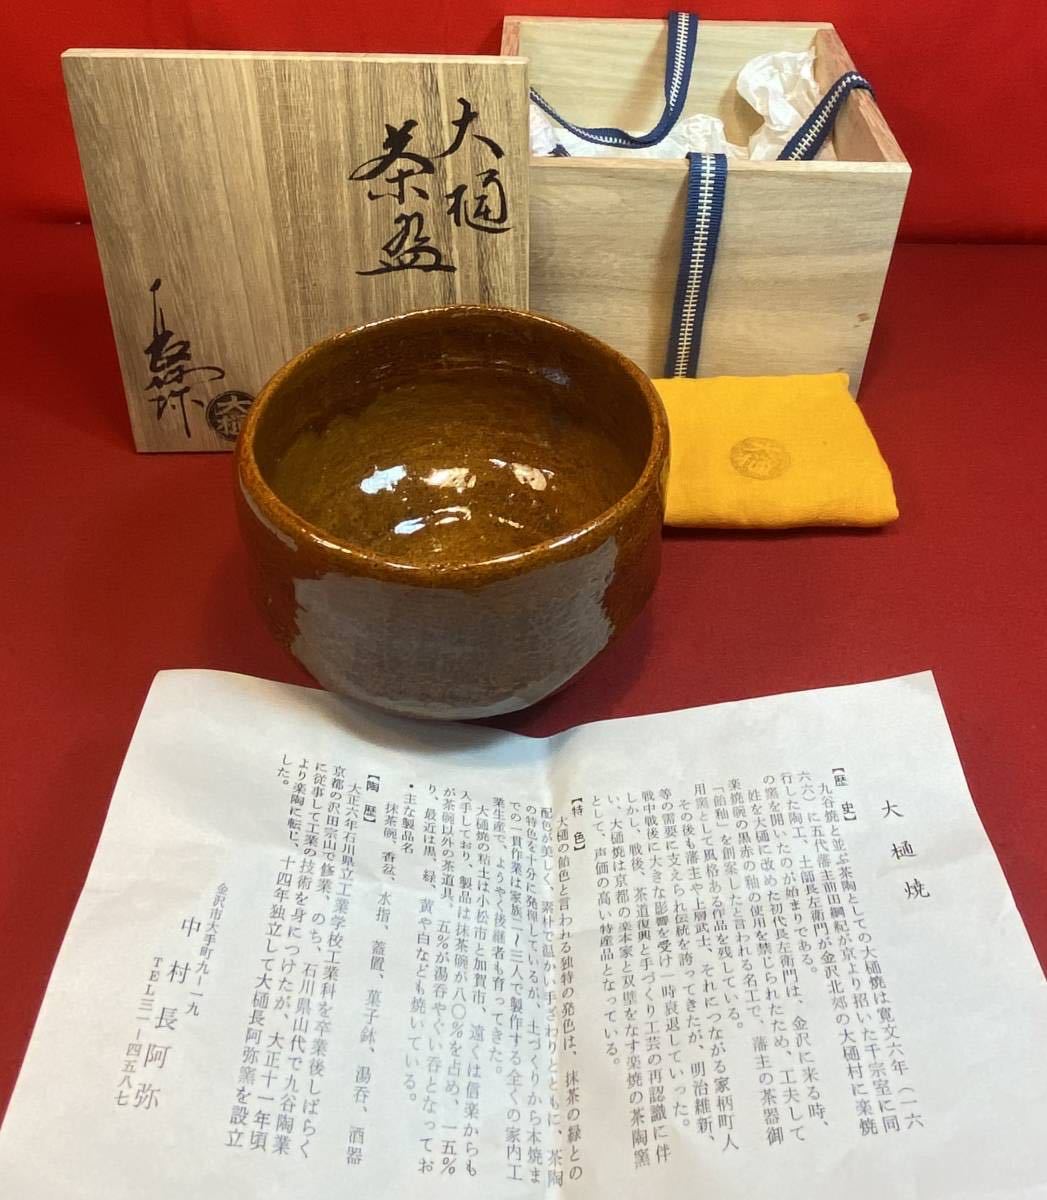 大樋
茶盌
長阿弥
大樋
大樋
大樋焼
【歴史】
九谷焼と並ぶ茶陶としての大樋焼は寛文六年(一六
六六)に五代藩主前田綱紀が京より招いた千宗室に同
行した陶工、土師長左衛門が金沢北郊の大樋村に楽焼
の窯を開いたのが始まりである。
姓を大樋に改めた初代長左衛門は、金沢に来る時、
楽焼碗の黒赤の釉の使用を禁じられたため、工夫して
「飴釉」を創案したと言われる名工で、藩主の茶器御
用窯として風格ある作品を残している。
その後も藩主や上層武士、それにつながる家柄町人
等の需要に支えられ伝統を誇ってきたが、明治維新、
戦中戦後に大きな影響を受け一時衰退していった。
しかし、戦後、茶道復興と手づくり工芸の再認識に伴
い、大樋焼は京都の楽本家と双璧をなす楽焼の茶陶窯
として、声価の高い特産品となっている。
【特色】
大樋の飴色と言われる独特の発色は、抹茶の緑との
配色が美しく、素朴で温かい手ざわりとともに、茶陶
の特色を十分に発揮しているが、土づくりから本焼ま
での一貫作業は家族二〜三人で製作する全くの家内工
業生産で、ようやく後継者も育ってきた。
大樋焼の粘土は小松市と加賀市、遠くは信楽からも
入手しており、製品は抹茶碗が八〇%を占め、一五%
が茶碗以外の茶道具、五%が湯呑やぐい呑となってお
り、最近は黒、緑、黄や白なども焼いている。
・主な製品名
抹茶碗、香盆、水指、蓋置、菓子鉢、湯呑、酒器
【陶歴】
大正六年石川県立工業学校工業科を卒業後しばらく
京都の沢田宗山で修業、のち、石川県山代で九谷陶業
に従事して工業の技術を身につけたが、大正十一年頃
より楽陶に転し、十四年独立して大樋長阿弥窯を設立
した。
金沢市大手町九ー一九
中村長阿弥
TEL三一ー四五八七